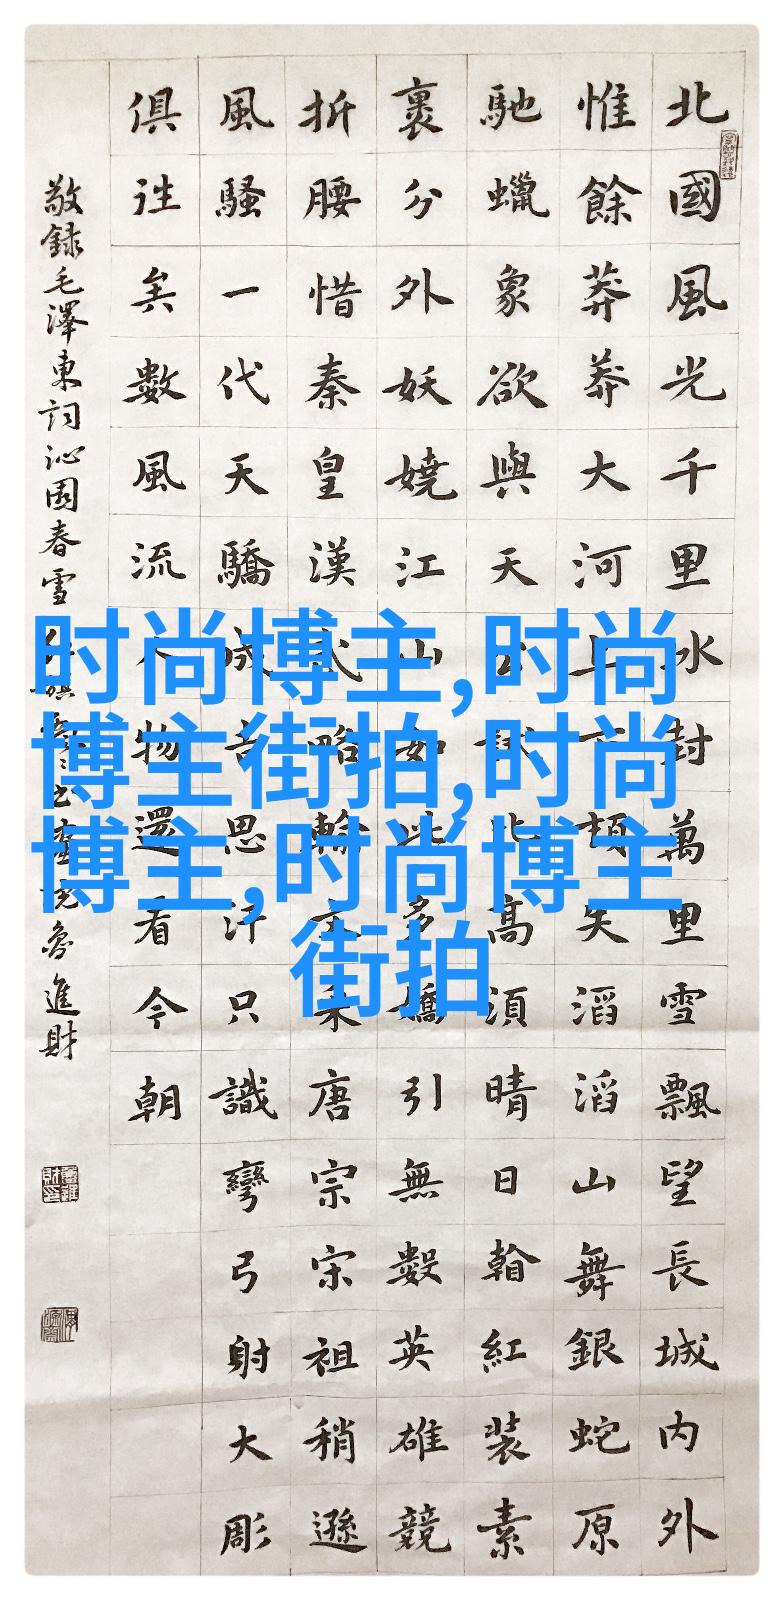 北國風光千里氷封萬里雪飄望長城内外
惟餘莽莽大河上下頓失滔滔山舞銀蛇原
馳蠟象欲與天公試比高須晴日看紅裝素
裹分外妖嬈江山如此多嬌引無數英雄競
折腰惜秦皇漢武略輸文采唐宗宋祖稍遜
風騷一代天驕成吉思汗只識彎弓射大彫
俱往矣數風流人物還看今朝
敬録毛澤東詞沁園春雪 魯進財
时尚博主,时尚
博主街拍,时尚
博主,时尚博主
街拍